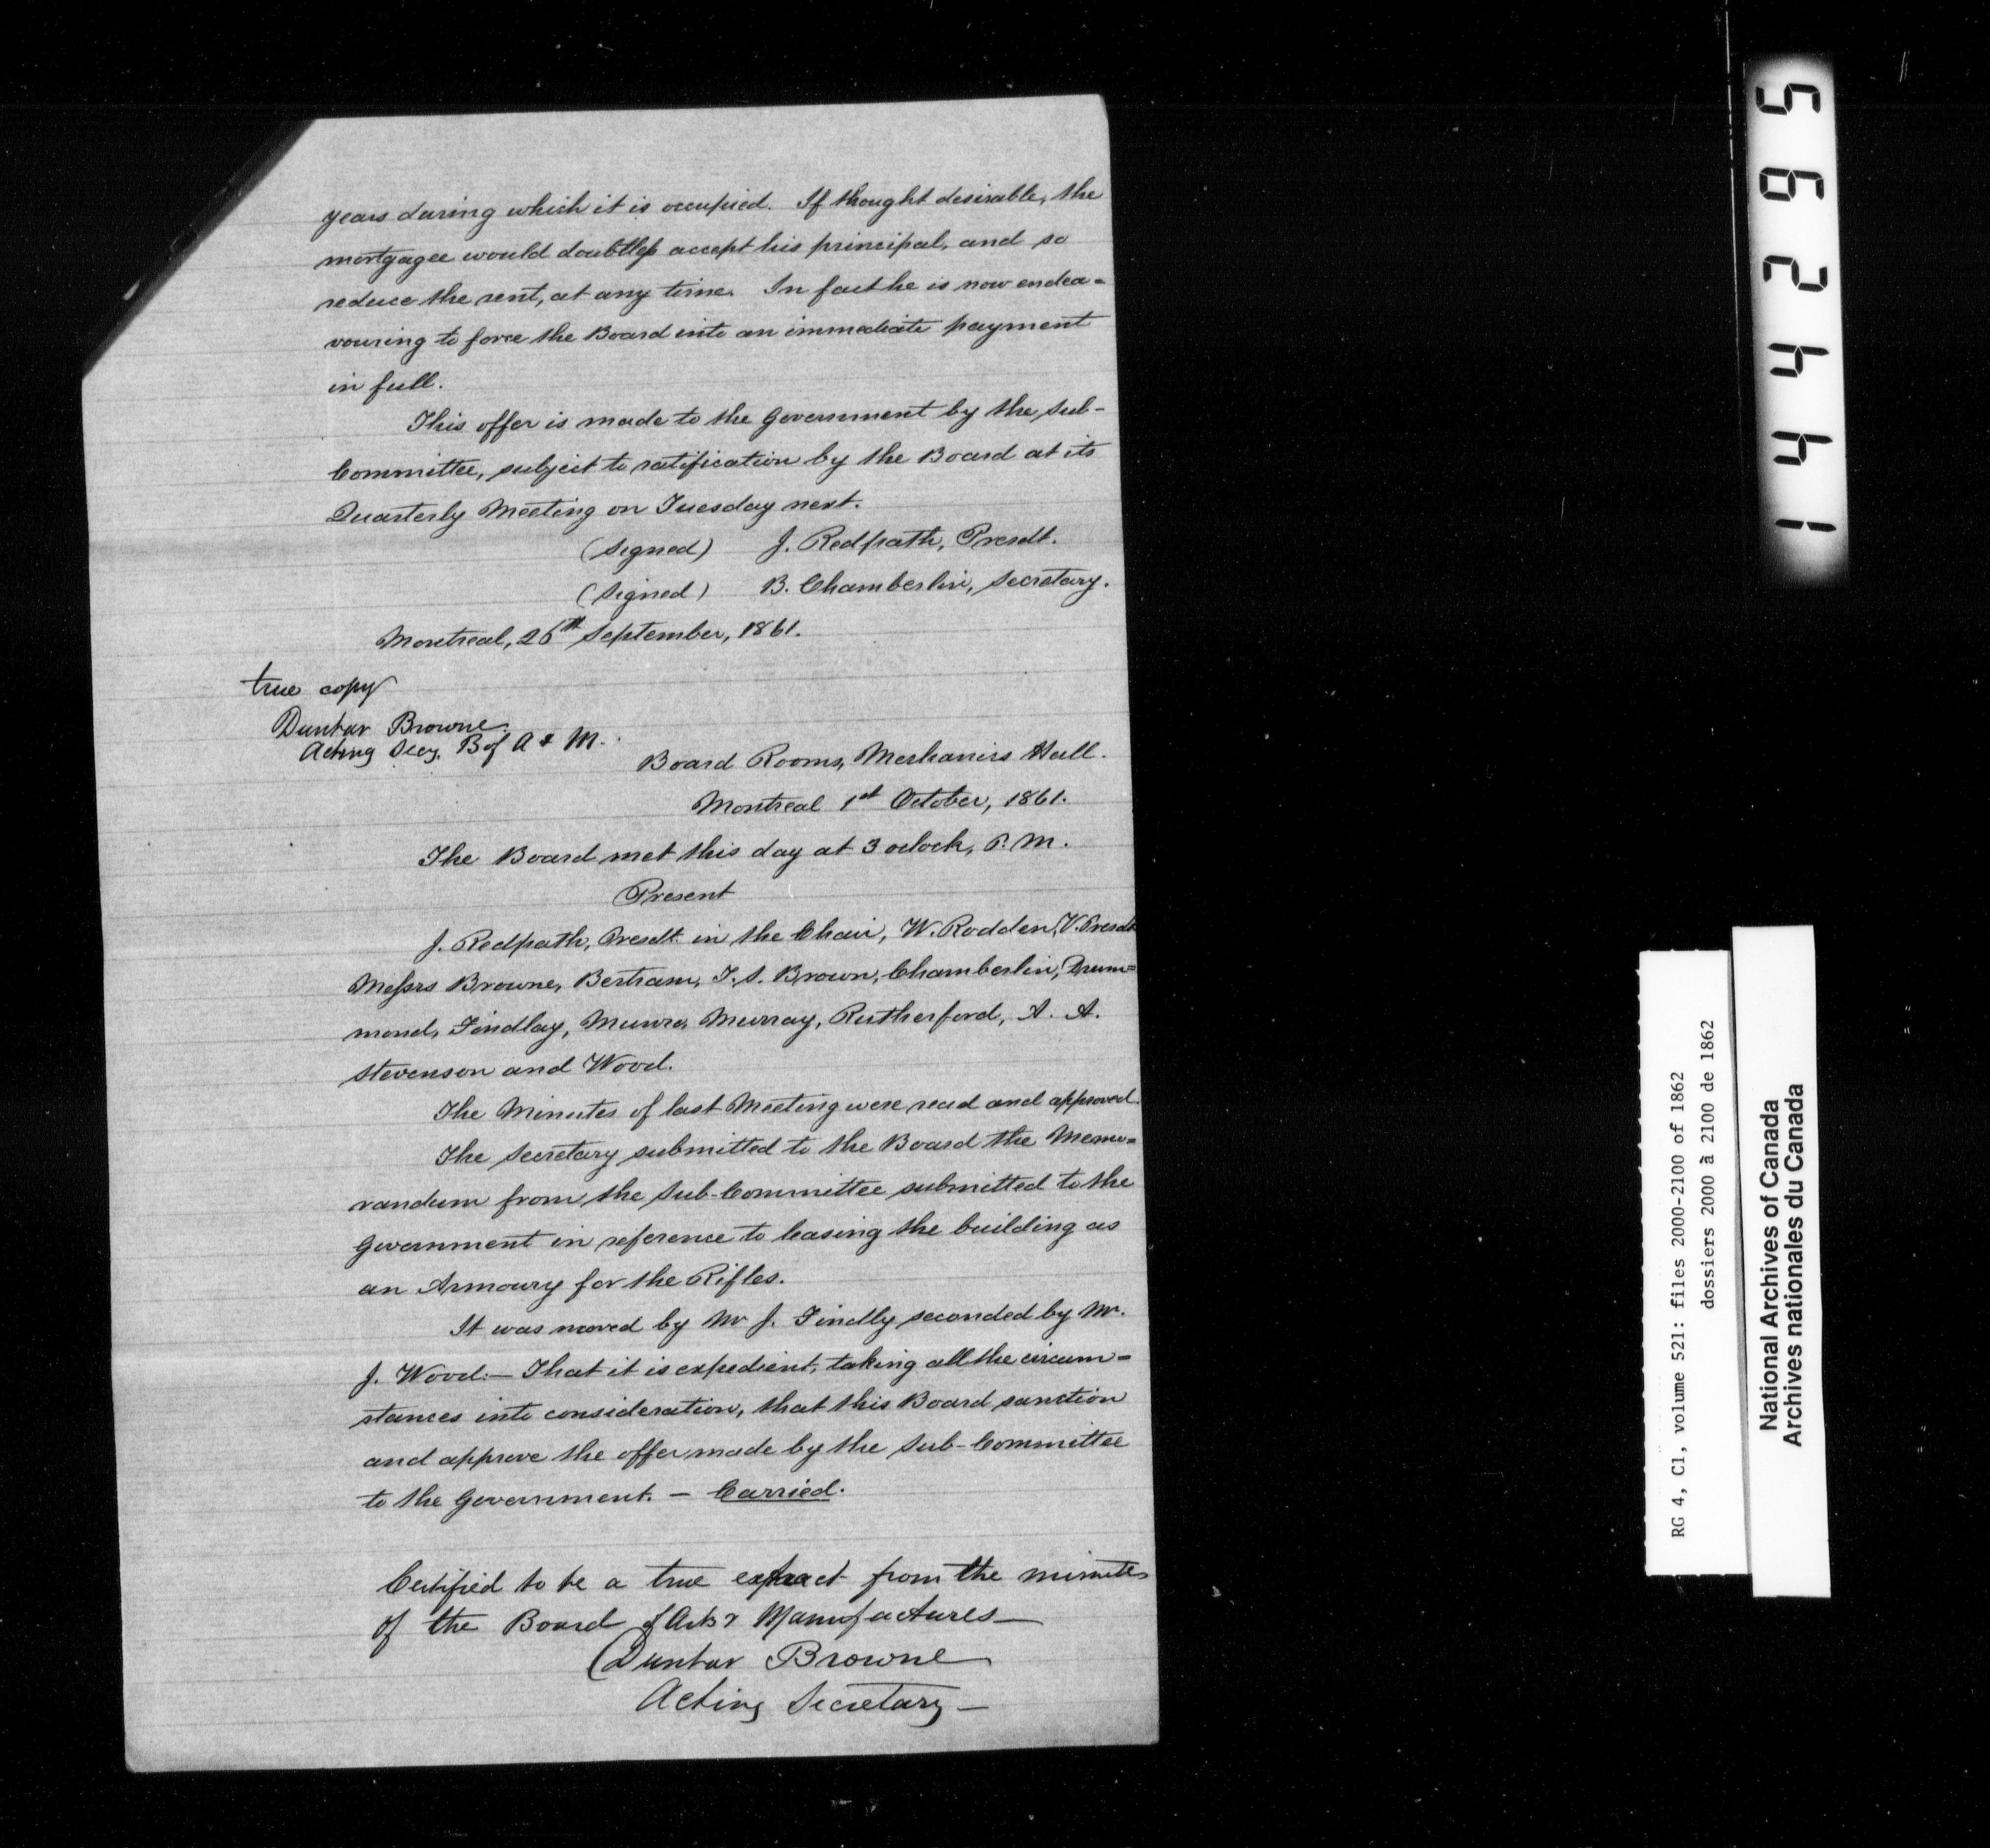 years during which it is occupied. If thought desirable, the
mortgagee would doubtless accept his principal, and so
reduce the rent, at any time. In fact he is now endea=
vouring to force the Board into an immediate payment
in full.
This offer is made to the Government by the Sub-
Committee, subject to ratification by the Board at its
Quarterly Meeting on Tuesday next.
(Signed) J. Redpath, Presdt.
(Signed) B. Chamberlin, Secretary.
Montreal, 26th September, 1861.
true copy
Dunbar Browne
Acting Secy. B of A & M.
Board Rooms, Mechanics Hall.
Montreal 1st October, 1861.
The Board met this day at 3 oclock, P.M.
Present
J. Redpath, Presdt. in the Chair, W. Rodden, V. Presdt
Messrs Browne, Bertram, T. S. Brown, Chamberlin, Drum=
mond, Findlay, Munro, Murray, Rutherford, A. A.
Stevenson and Wood.
The Minutes of last Meeting were read and approved.
The Secretary submitted to the Board the Memo=
randum from the Sub-Committee submitted to the
Government in reference to leasing the building as
an Armoury for the Rifles.
It was moved by Mr J. Findly seconded by Mr.
J. Wood:— That it is expedient, taking all the circum=
stances into consideration, that this Board sanction
and approve the offer made by the Sub-Committee
to the Government. — Carried.
Certified to be a true extract from the minutes
of the Board of Arts & Manufactures—
Dunbar Browne
Acting Secretary—
144295
RG 4, C1, volume 521: files 2000-2100 of 1862
dossiers 2000 à 2100 de 1862
National Archives of Canada
Archives nationales du Canada